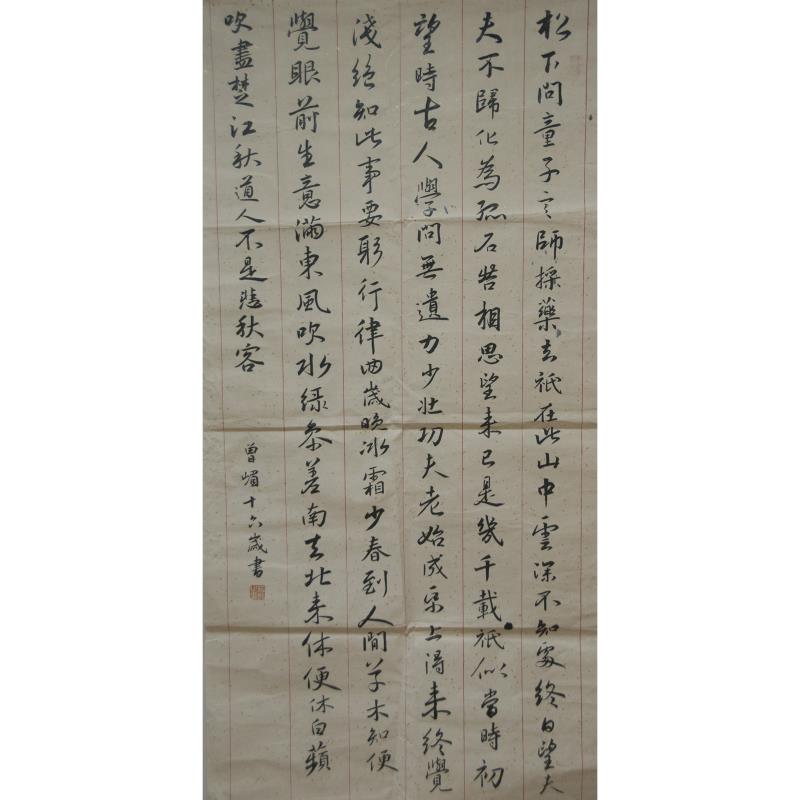 松下問童子言師採藥去祇在此山中雲深不知處終日望夫
夫不歸化為孤石苦相思望来已是幾千載祇似當時初
望時古人學問無遺力少壮功夫老始成紙上得来終覺
淺絕知此事要躬行律回歲晚冰霜少春到人間草木知便
覺眼前生意滿東風吹水綠參差南去北来休便休白蘋
吹盡楚江秋道人不是悲秋客
曾嵋十六歲書